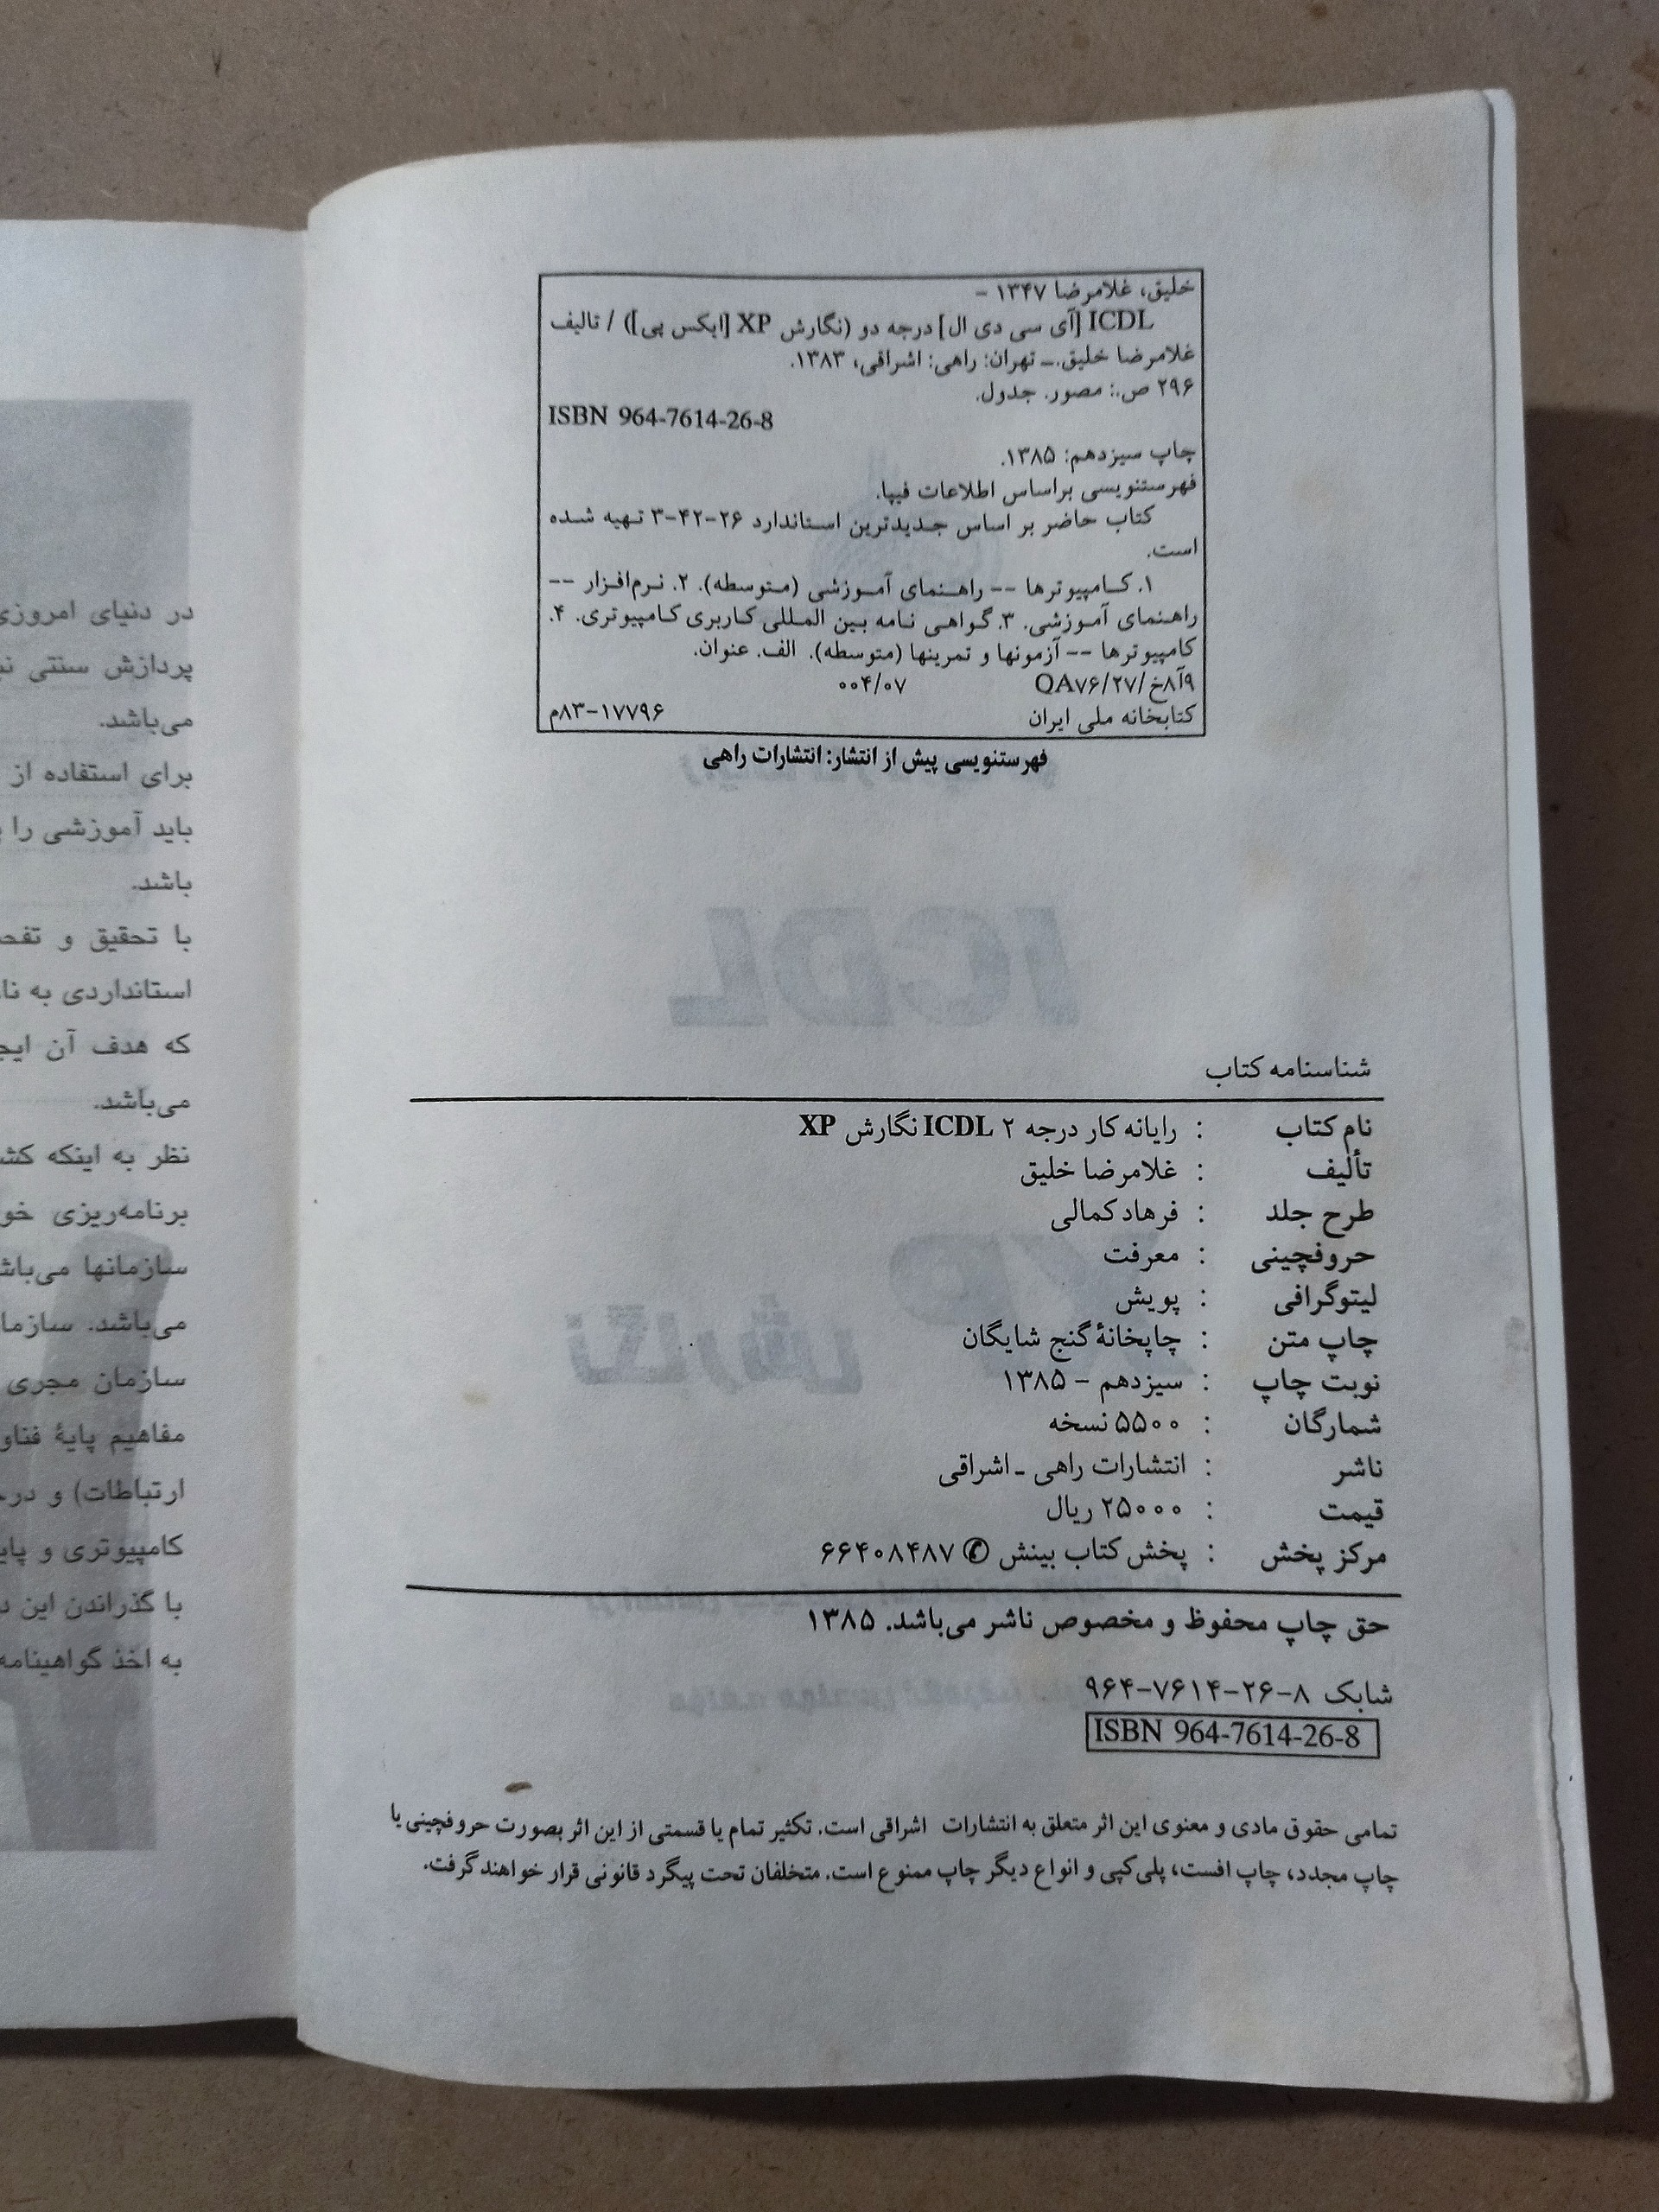 خلیق، غلامرضا ۱۳۴۷ -
ICDL [آی سی دی ال] درجه دو (نگارش XP [ایکس پی]) / تالیف
غلامرضا خلیق.ـ تهران: راهی: اشراقی، ۱۳۸۳.
۲۹۶ ص.: مصور. جدول.
ISBN 964-7614-26-8
چاپ سیزدهم: ۱۳۸۵.
فهرستنویسی براساس اطلاعات فیپا.
کتاب حاضر بر اساس جدیدترین استاندارد ۲۶-۴۲-۳ تهیه شده
است.
۱. کامپیوترها -- راهنمای آموزشی (متوسطه). ۲. نرم‌افزار --
راهنمای آموزشی. ۳. گواهی نامه بین المللی کاربری کامپیوتری. ۴.
کامپیوترها -- آزمونها و تمرینها (متوسطه). الف. عنوان.
۹آ۸خ/۲۷/QA۷۶ ۰۰۴/۰۷
کتابخانه ملی ایران ۱۷۷۹۶-۸۳م
فهرستنویسی پیش از انتشار: انتشارات راهی
شناسنامه کتاب
نام کتاب : رایانه کار درجه ۲ ICDL نگارش XP
تألیف : غلامرضا خلیق
طرح جلد : فرهاد کمالی
حروفچینی : معرفت
لیتوگرافی : پویش
چاپ متن : چاپخانهٔ گنج شایگان
نوبت چاپ : سیزدهم - ۱۳۸۵
شمارگان : ۵۵۰۰ نسخه
ناشر : انتشارات راهی ـ اشراقی
قیمت : ۲۵۰۰۰ ریال
مرکز پخش : پخش کتاب بینش ✆ ۶۶۴۰۸۴۸۷
حق چاپ محفوظ و مخصوص ناشر می‌باشد. ۱۳۸۵
شابک ۸-۲۶-۷۶۱۴-۹۶۴
ISBN 964-7614-26-8
تمامی حقوق مادی و معنوی این اثر متعلق به انتشارات اشراقی است. تکثیر تمام یا قسمتی از این اثر بصورت حروفچینی یا
چاپ مجدد، چاپ افست، پلی‌کپی و انواع دیگر چاپ ممنوع است. متخلفان تحت پیگرد قانونی قرار خواهند گرفت.
در دنیای امروزی
پردازش سنتی
می‌باشد.
برای استفاده از
باید آموزشی را
باشد.
با تحقیق و
استانداردی به
که هدف آن
می‌باشد.
نظر به اینکه
برنامه‌ریزی
سازمانها
می‌باشد.
سازمان مجری
مفاهیم پایهٔ
ارتباطات) و
کامپیوتری و
با گذراندن این
به اخذ گواهینامه